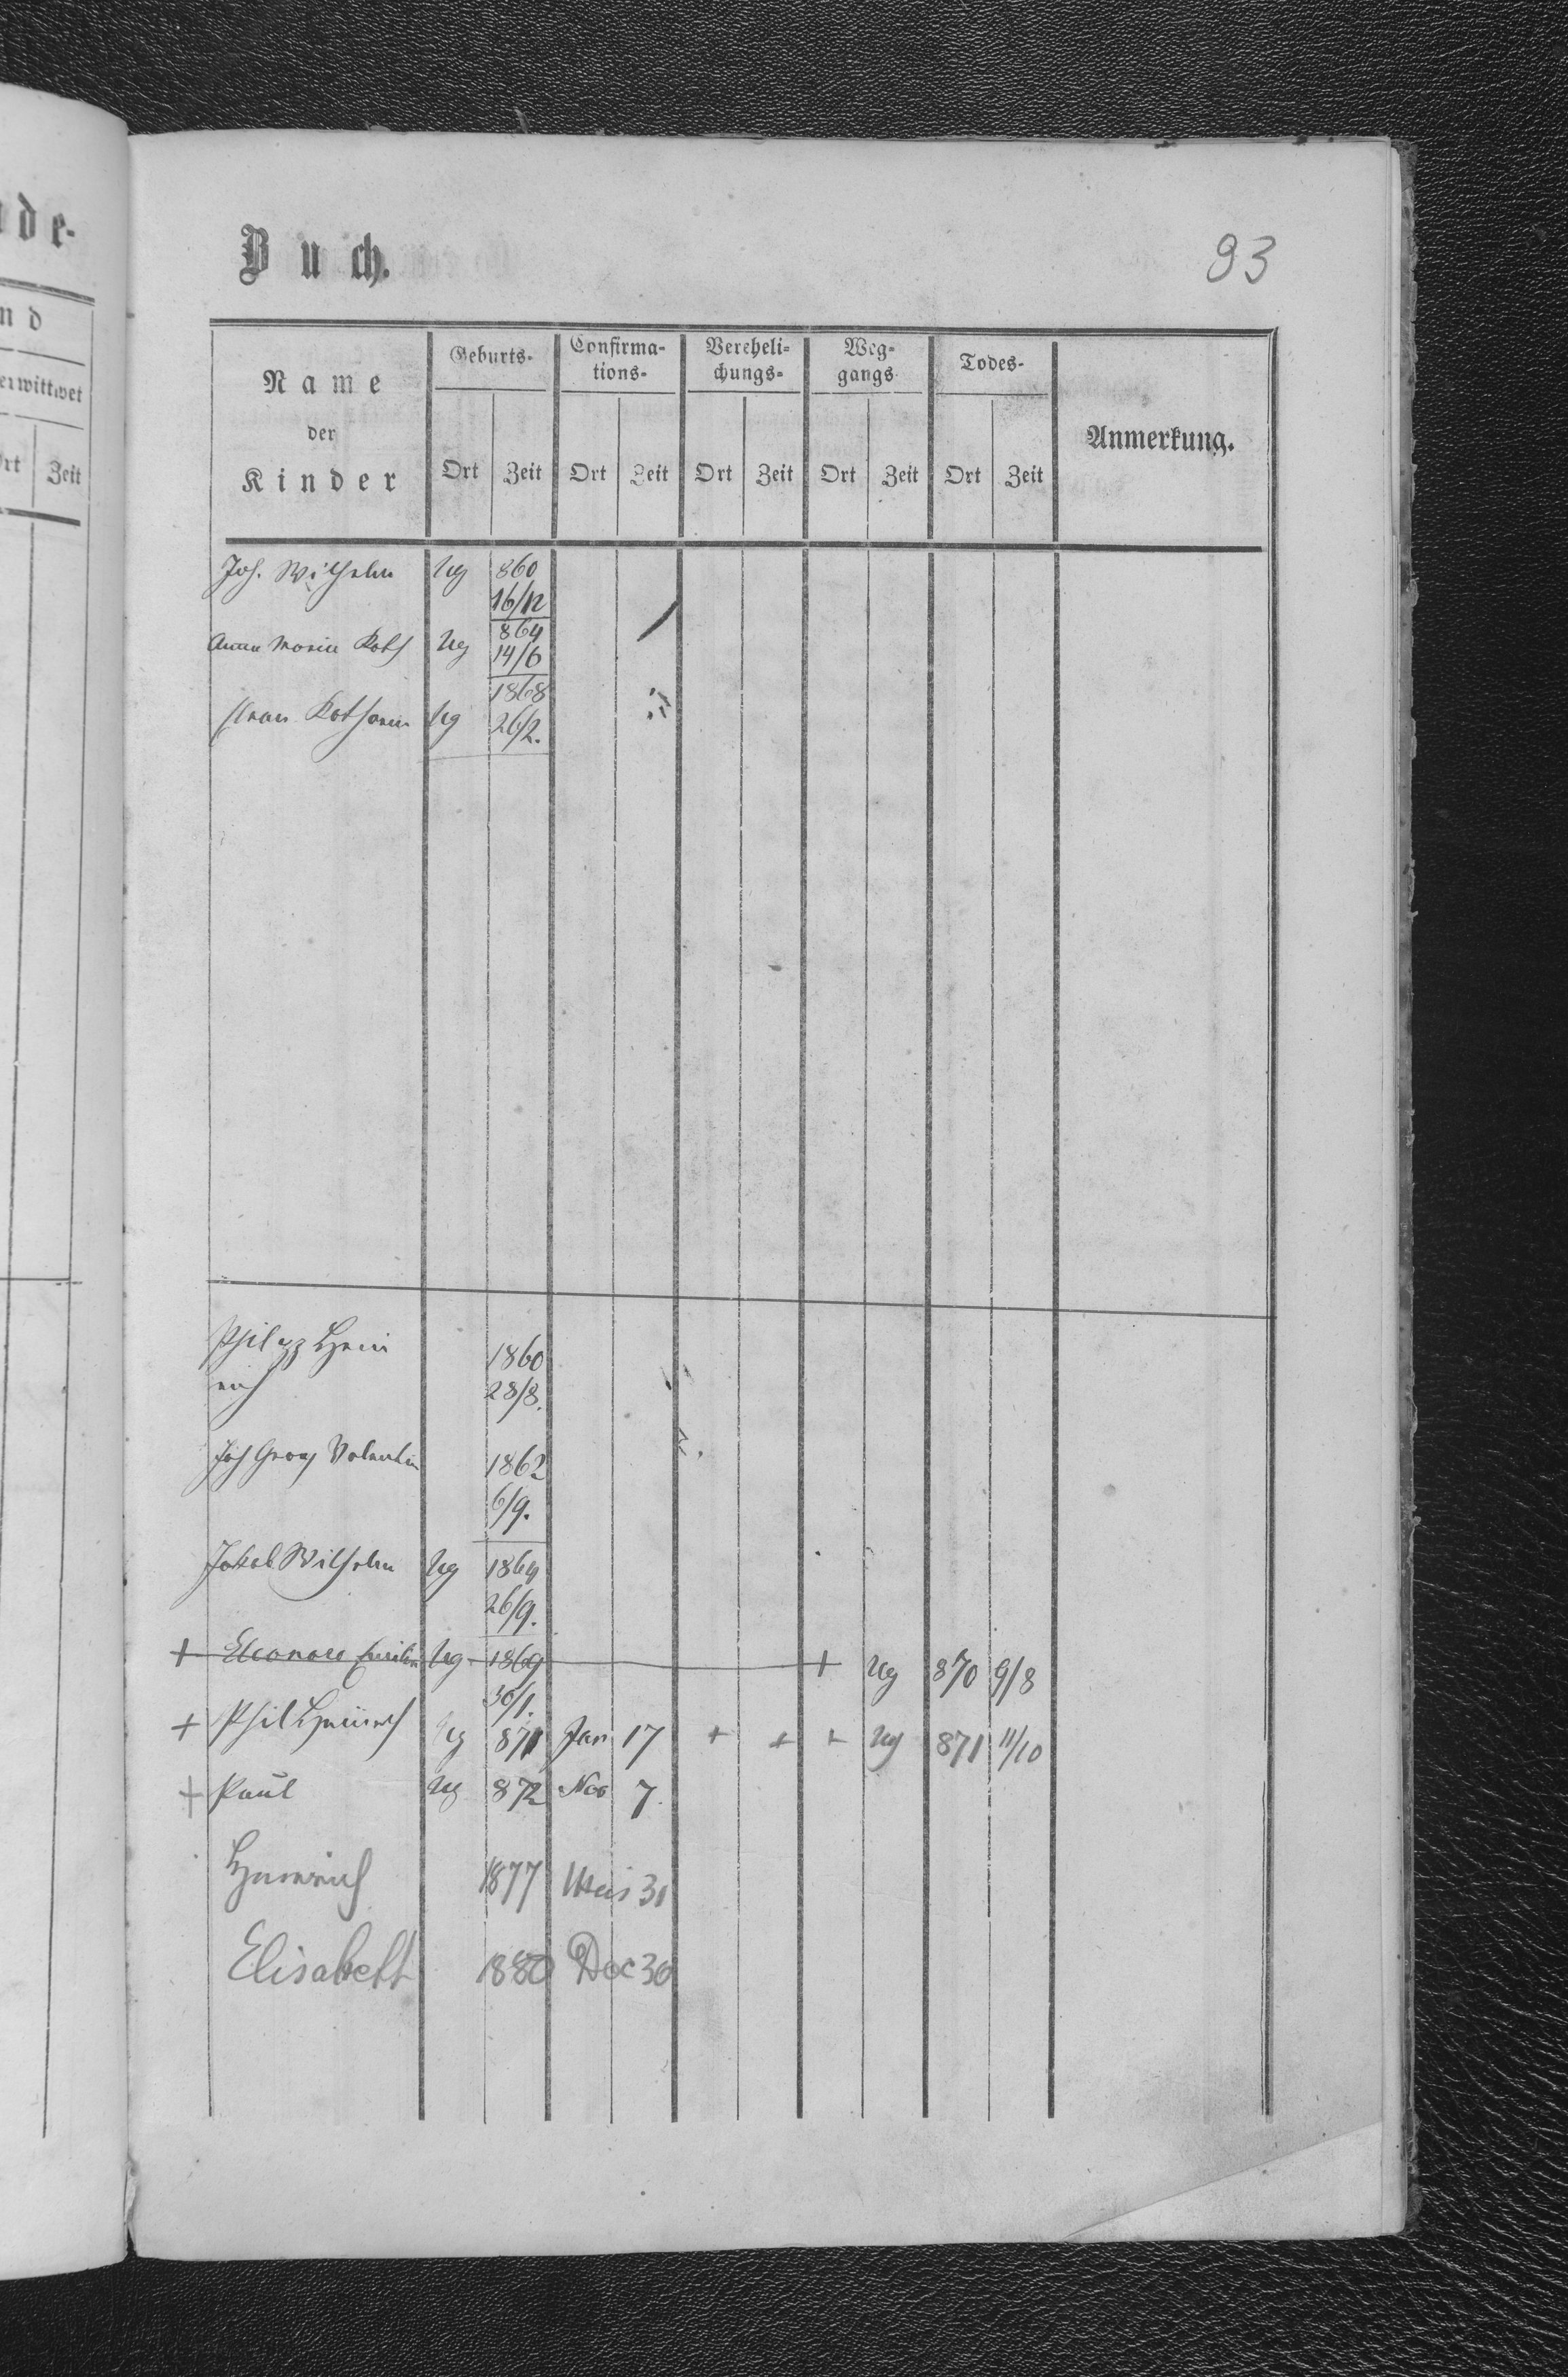 de-
nd
erwittwet
Ort Zeit
Buch.
93
Name der Kinder
Geburts-
Confirma-
tions-
Vereheli-
chungs-
Weg-
gangs
Todes-
Anmerkung.
Ort Zeit Ort Zeit Ort Zeit Ort Zeit Ort Zeit
Joh. Wilhelm Ug 860
16/12
Anna Maria Kath Ug 864
14/6
1868
Katharin Ug 26/2.
Philipp Hein
rich
1860
28/8.
Joh Georg Valentin 1862
6/9.
Jakob Wilhelm Ug 1864
26/9.
+ Eleonore Emilie Ug 1869 + Ug 870 9/8
30/1.
+ Phil Heinrich Ug 871 Jan 17 + + + Ug 871 11/10
+ Paul Ug 872 Nov 7.
Heinrich 1877 Mai 31
Elisabeth 1880 Dec 30